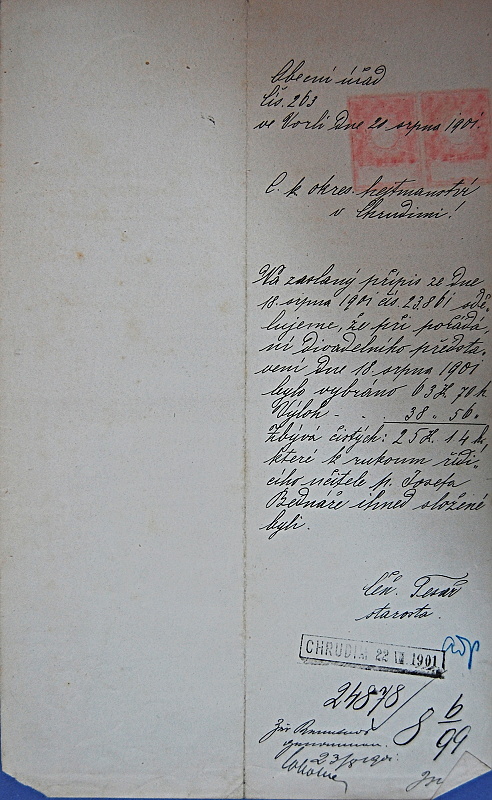 Obecní úřad
čís. 263
ve Vorli dne 20. srpna 1901.
C. k. okres. hejtmanství
v Chrudimi!
Na zaslaný přípis ze dne
18. srpna 1901 čís. 23.861 sdě-
lujeme, že při pořádá-
ní divadelního předsta-
vení dne 18. srpna 1901
bylo vybráno 63 K 70 h
Výloh - . . 38 " 56 "
Zbývá čistých: 25 K 14 h,
které k rukoum řídi-
cího učitele p. Josefa
Bednáře ihned složené
byli.
Čen. Tesař
starosta.
CHRUDIM 22 1901
24878
8 6/99
Zur Kenntnis
genommen.